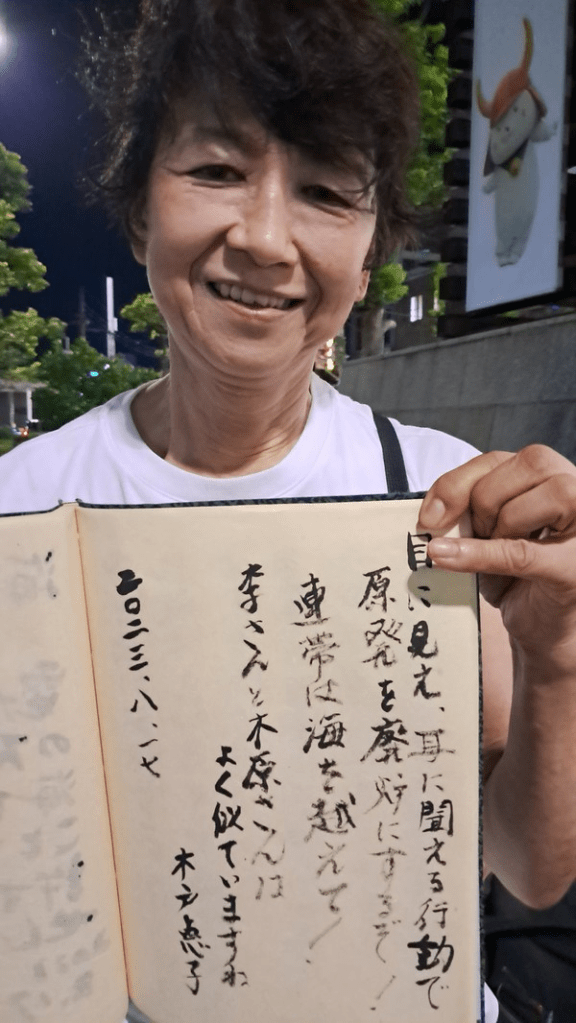 目に見え、耳に聞える行動で
原発を廃炉にするぞ！
連帯は海を越えて！
李さんと木原さんは
よく似ていますね
木戸惠子
二〇二三、八、一七